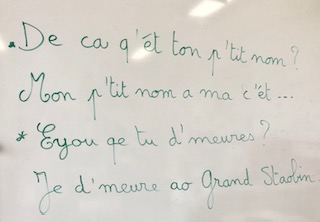 * De ca q'ét ton p'tit nom ?
Mon p'tit nom a ma c'ét ...
* Eyou qe tu d'meures ?
Je d'meure ao Grand Staobin